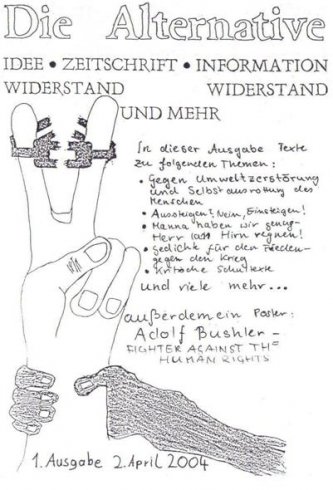 Die Alternative
IDEE • ZEITSCHRIFT • INFORMATION
WIDERSTAND WIDERSTAND
UND MEHR
In dieser Ausgabe Texte
zu folgenden Themen:
• Gegen Umweltzerstörung
und Selbstausrottung des
Menschen
• Aussteigen? Nein, Einsteigen!
• Manna haben wir genug-
Herr lass Hirn regnen!
• Gedicht für den Frieden-
gegen den Krieg
• Kritische
und viele mehr...
außerdem ein Poster:
Adolf Bushler -
FIGHTER AGAINST THE
HUMAN RIGHTS
1. Ausgabe 2. April 2004